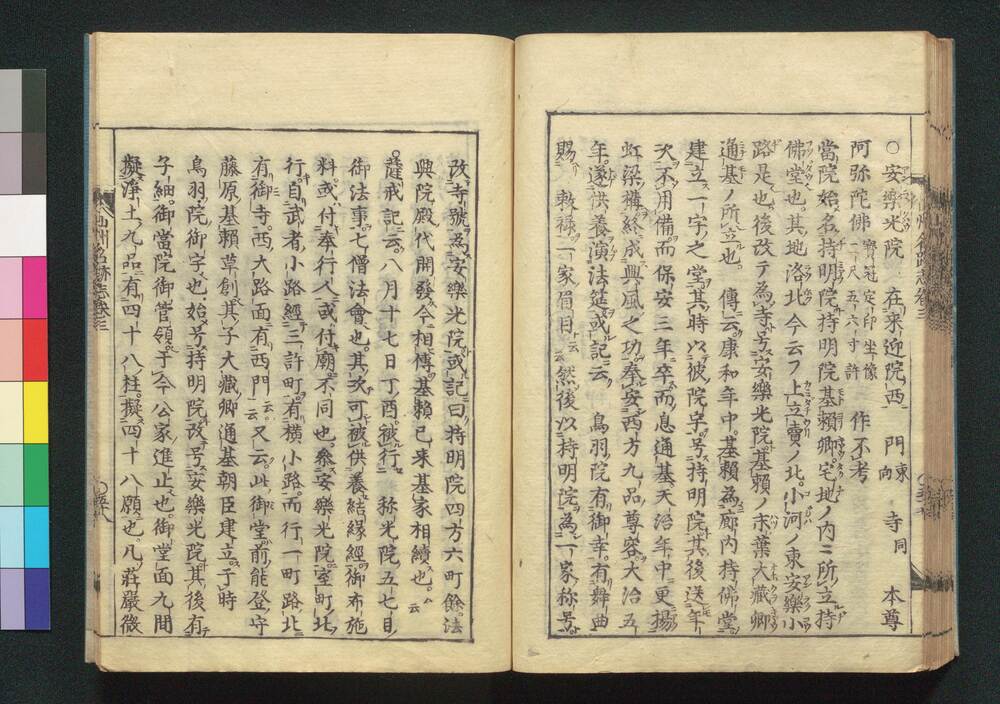 ○安樂光院 在来迎院西 門東向 寺同 本尊
阿弥陀佛 寶冠定印坐像一尺五六寸許 作不考
當院始名持明院持明院基頼卿宅地ノ内ニ所立持
佛堂也其地洛北今云フ上立賣ノ北小河ノ東安樂小
路是也後改テ為寺号安樂光院基頼ノ末葉大藏卿
通基ノ所立也 傳云康和年中基頼為廊内持佛堂
建立一宇之堂其時以彼院字号持明院其後送年
次不用備而保安三年卒而息通基天治年中更揚
虹梁構終成興風之功奉安西方九品尊容大治五
年遂供養演法筵或記云 鳥羽院有御幸有舞曲
賜 勅禄一家眉目云云然後以持明院為一家称号
改寺號為安樂光院或記曰持明院四方六町餘法
興院殿代開發今相傳基頼已来基家相續也云云
薩戒記云八月十七日丁酉被行 称光院五七日
御法事七僧法會也其次可被供養結縁經御布施
料或付奉行人或付廟不同也參安樂光院室町北
行自武者小路經三許町有横小路而行一町路北
有御寺西大路面有西門云云又云此御堂前能登守
藤原基頼草創其子大藏卿通基朝臣建立于時
鳥羽院御宇也始号持明院改号安樂光院其後有
子細御當院御管領于今公家進止也御堂面九間
擬浄土九品有四十八柱擬四十八願也凡莊嚴微
山州名跡志巻三